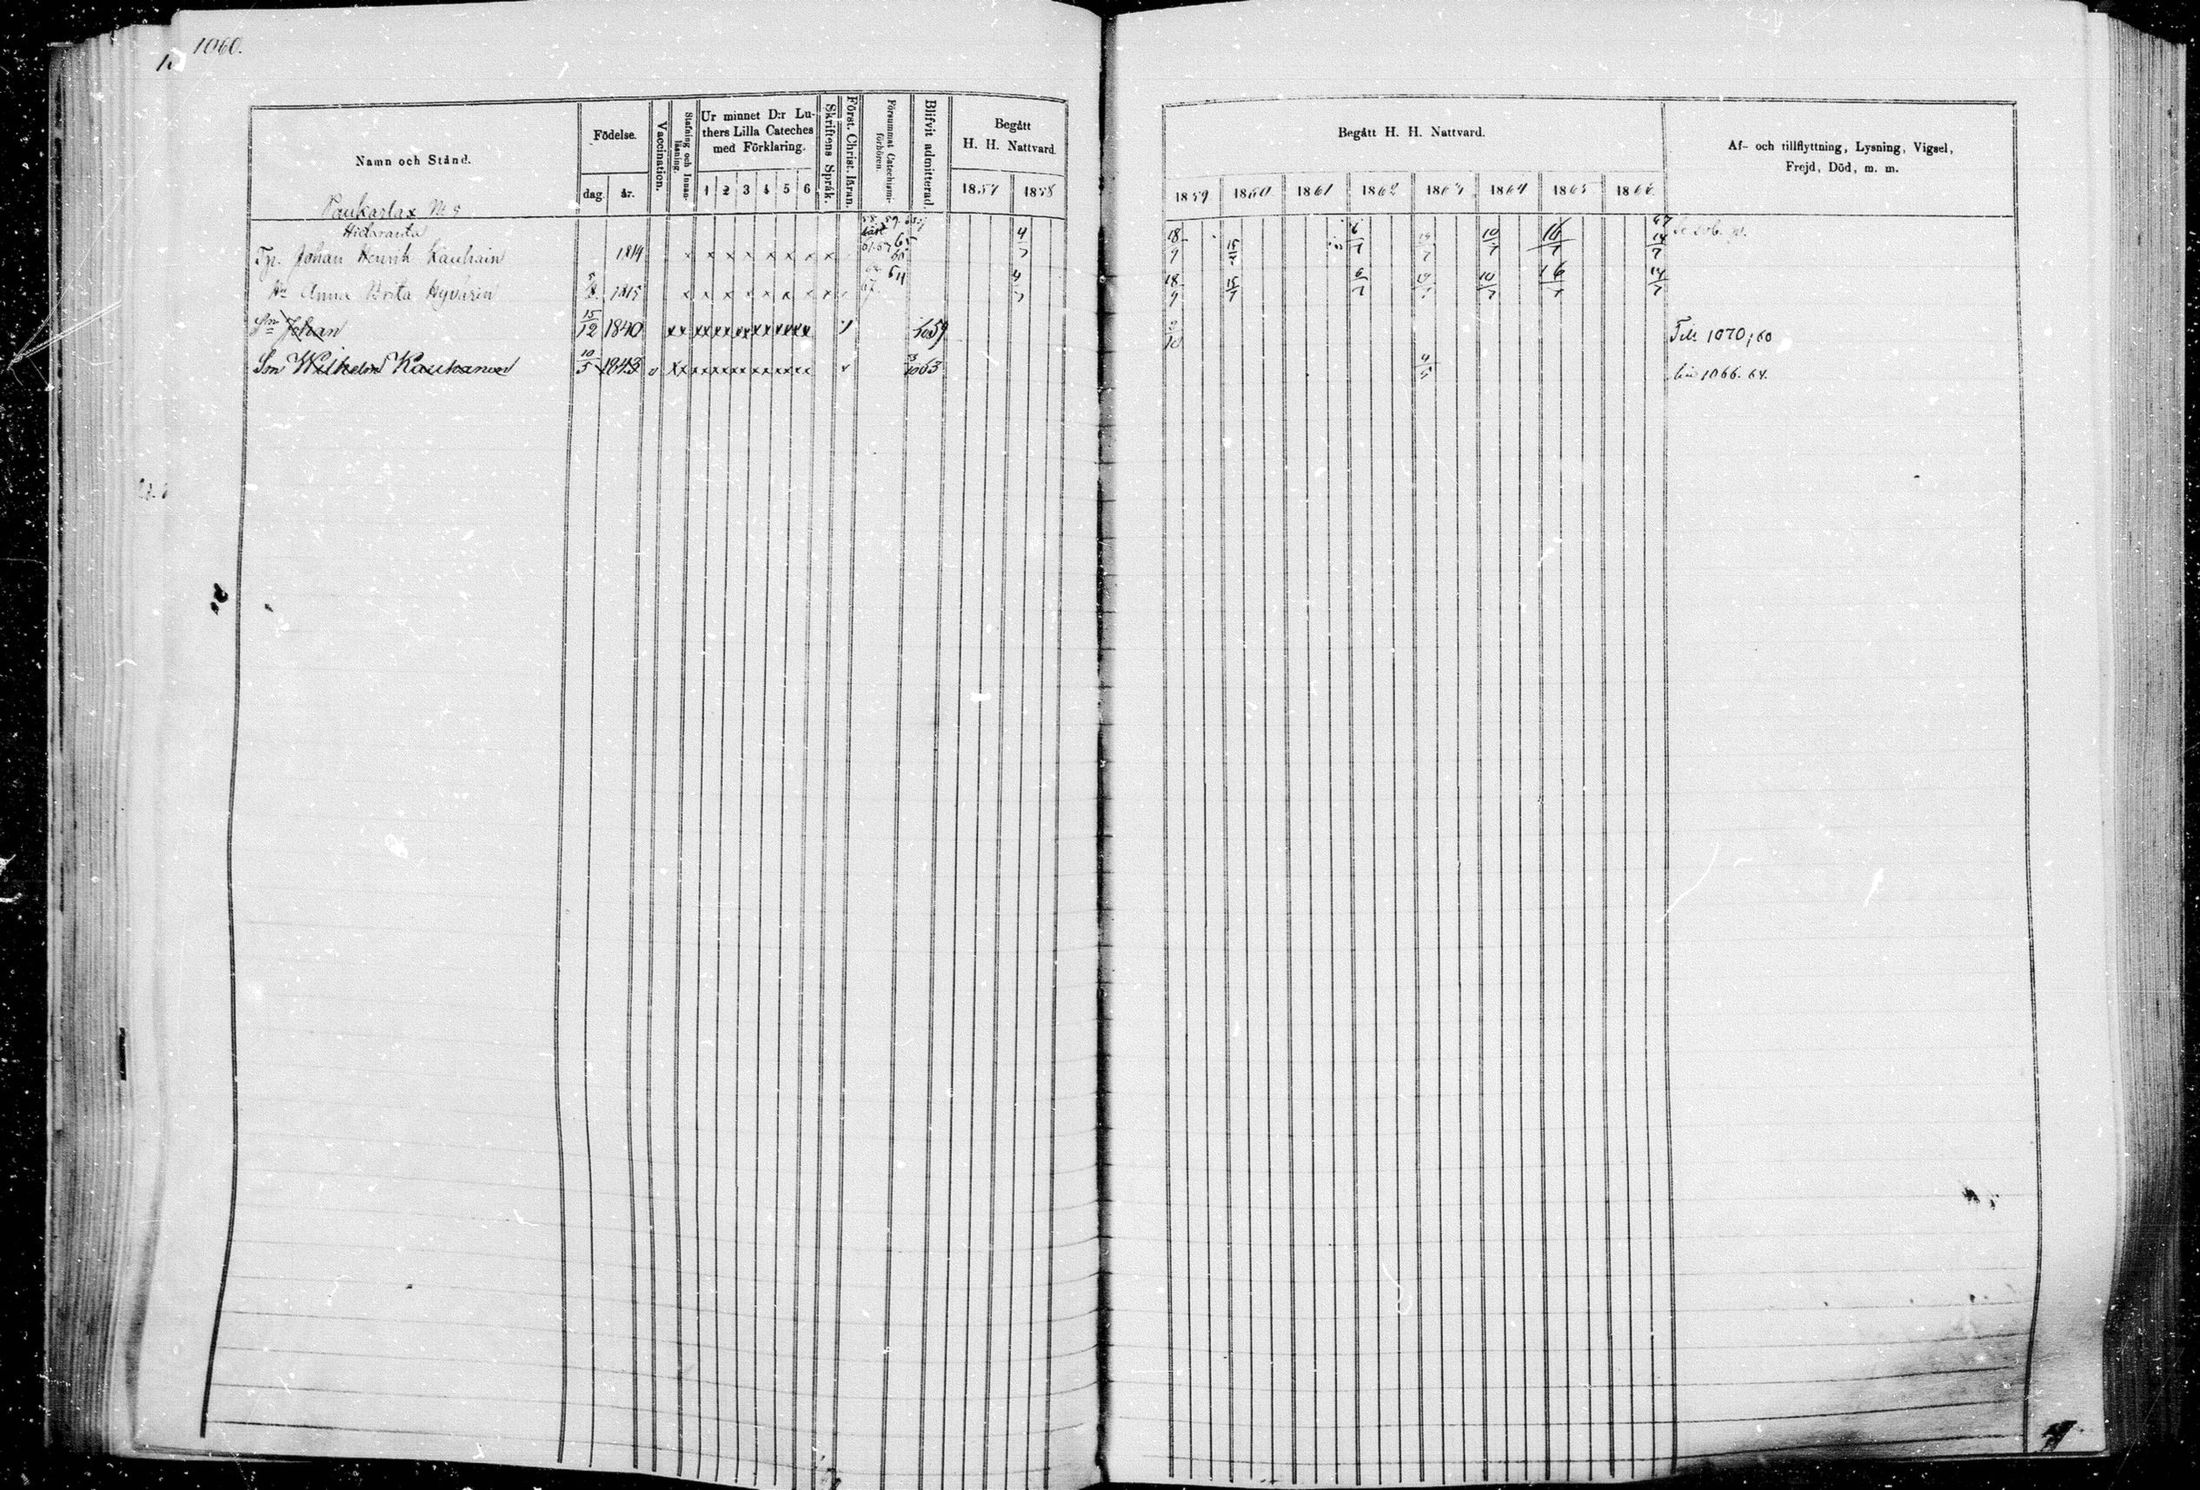 1060.
Namn och Stånd.
Födelse.
dag.
år.
Vaccination.
Stafning och Innanläsning.
Ur minnet D:r Luthers Lilla Cateches med Förklaring.
1 2 3 4 5 6
Skriftens Språk.
Först. Christ. läran.
Försummat Catechismiförhören.
Blifvit admitterad.
Begått H. H. Nattvard.
1857 1858
Begått H. H. Nattvard.
1859 1860 1861 1862 1863 1864 1865 1866
Af- och tillflyttning, Lysning, Vigsel,
Frejd, Död, m. m.
Paukarlax No
Johan Henrik 1814 x x x x x x x x 4/7 18/9 15/7 6/7 10/7 16/7 14/7
Anna Brita Hyvärin 1815 x x x x x x x x 4/7 18/9 15/7 6/7 10/7 16/7 14/7
Son Johan 15/12 1840 xx xx xx xx xx xx xx 59 Till 1070, 60
Son Wilhelm Kauhanen 10/5 1843 v xx xx xx xx xx xx xx 63 4/5 1066. 64.